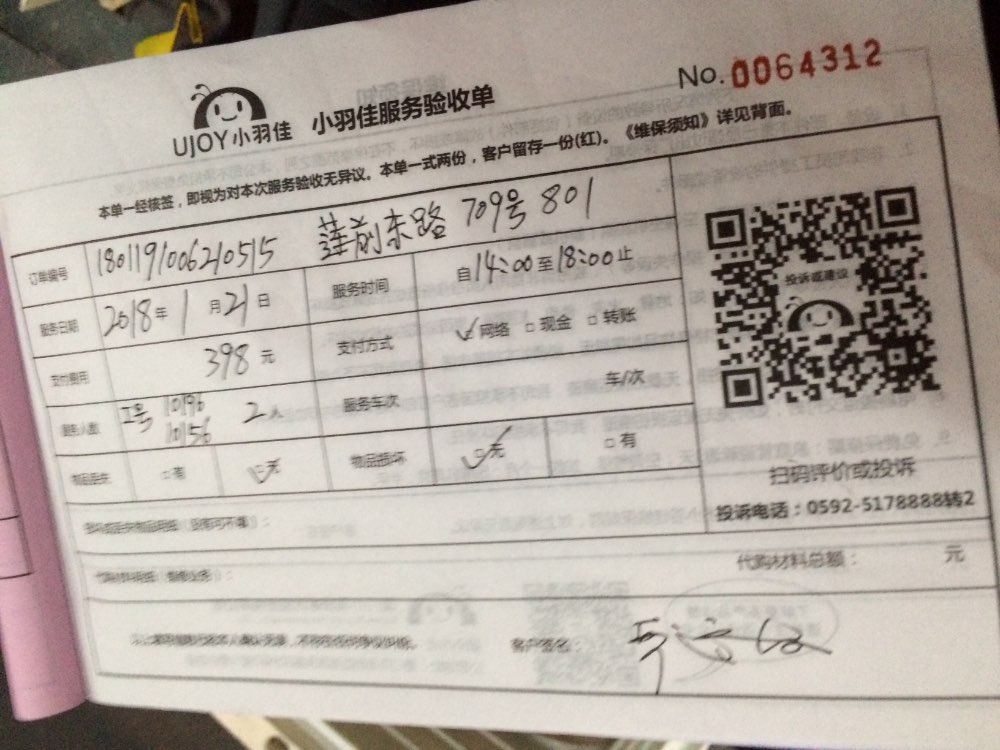 No. 0064312
UJOY小羽佳 小羽佳服务验收单
本单一经核签，即视为对本次服务验收无异议。本单一式两份，客户留存一份(红)。《维保须知》详见背面。
订单编号 1801191006210515 莲前东路 709号 801
服务日期 2018年1月21日 服务时间 自14:00至18:00止
支付费用 398元 支付方式 网络 □现金 □转账
服务人数 工号 10196 2人 服务车次 车/次
10156
物品丢失 □有 □无 物品损坏 □无 □有
投诉或建议
扫码评价或投诉
投诉电话：0592-5178888转2
代购材料总额： 元
客户签名：